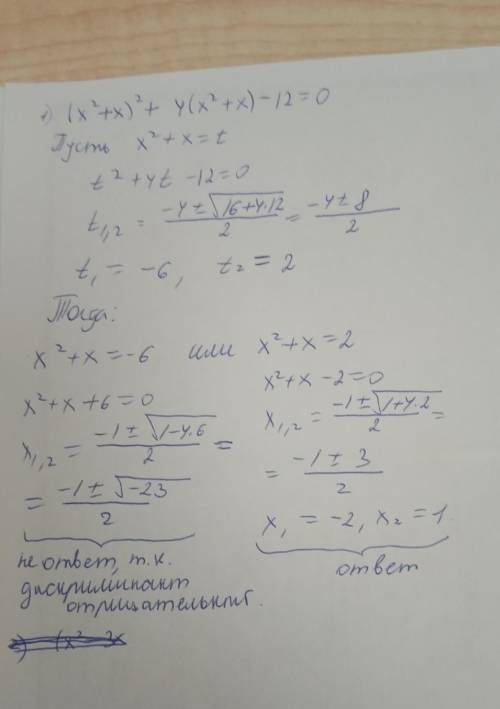 1) (x²+x)² + 4(x²+x) - 12 = 0
Пусть x²+x = t
t² + 4t - 12 = 0
t₁,₂ = (-4 ± √(16+4·12))/2 = (-4 ± 8)/2
t₁ = -6, t₂ = 2
Тогда:
x²+x = -6 или x²+x = 2
x²+x+6 = 0
x₁,₂ = (-1 ± √(1-4·6))/2 =
= (-1 ± √-23)/2
не ответ, т.к.
дискриминант
отрицательный.
x²+x-2 = 0
x₁,₂ = (-1 ± √(1+4·2))/2 =
= (-1 ± 3)/2
x₁ = -2, x₂ = 1
ответ